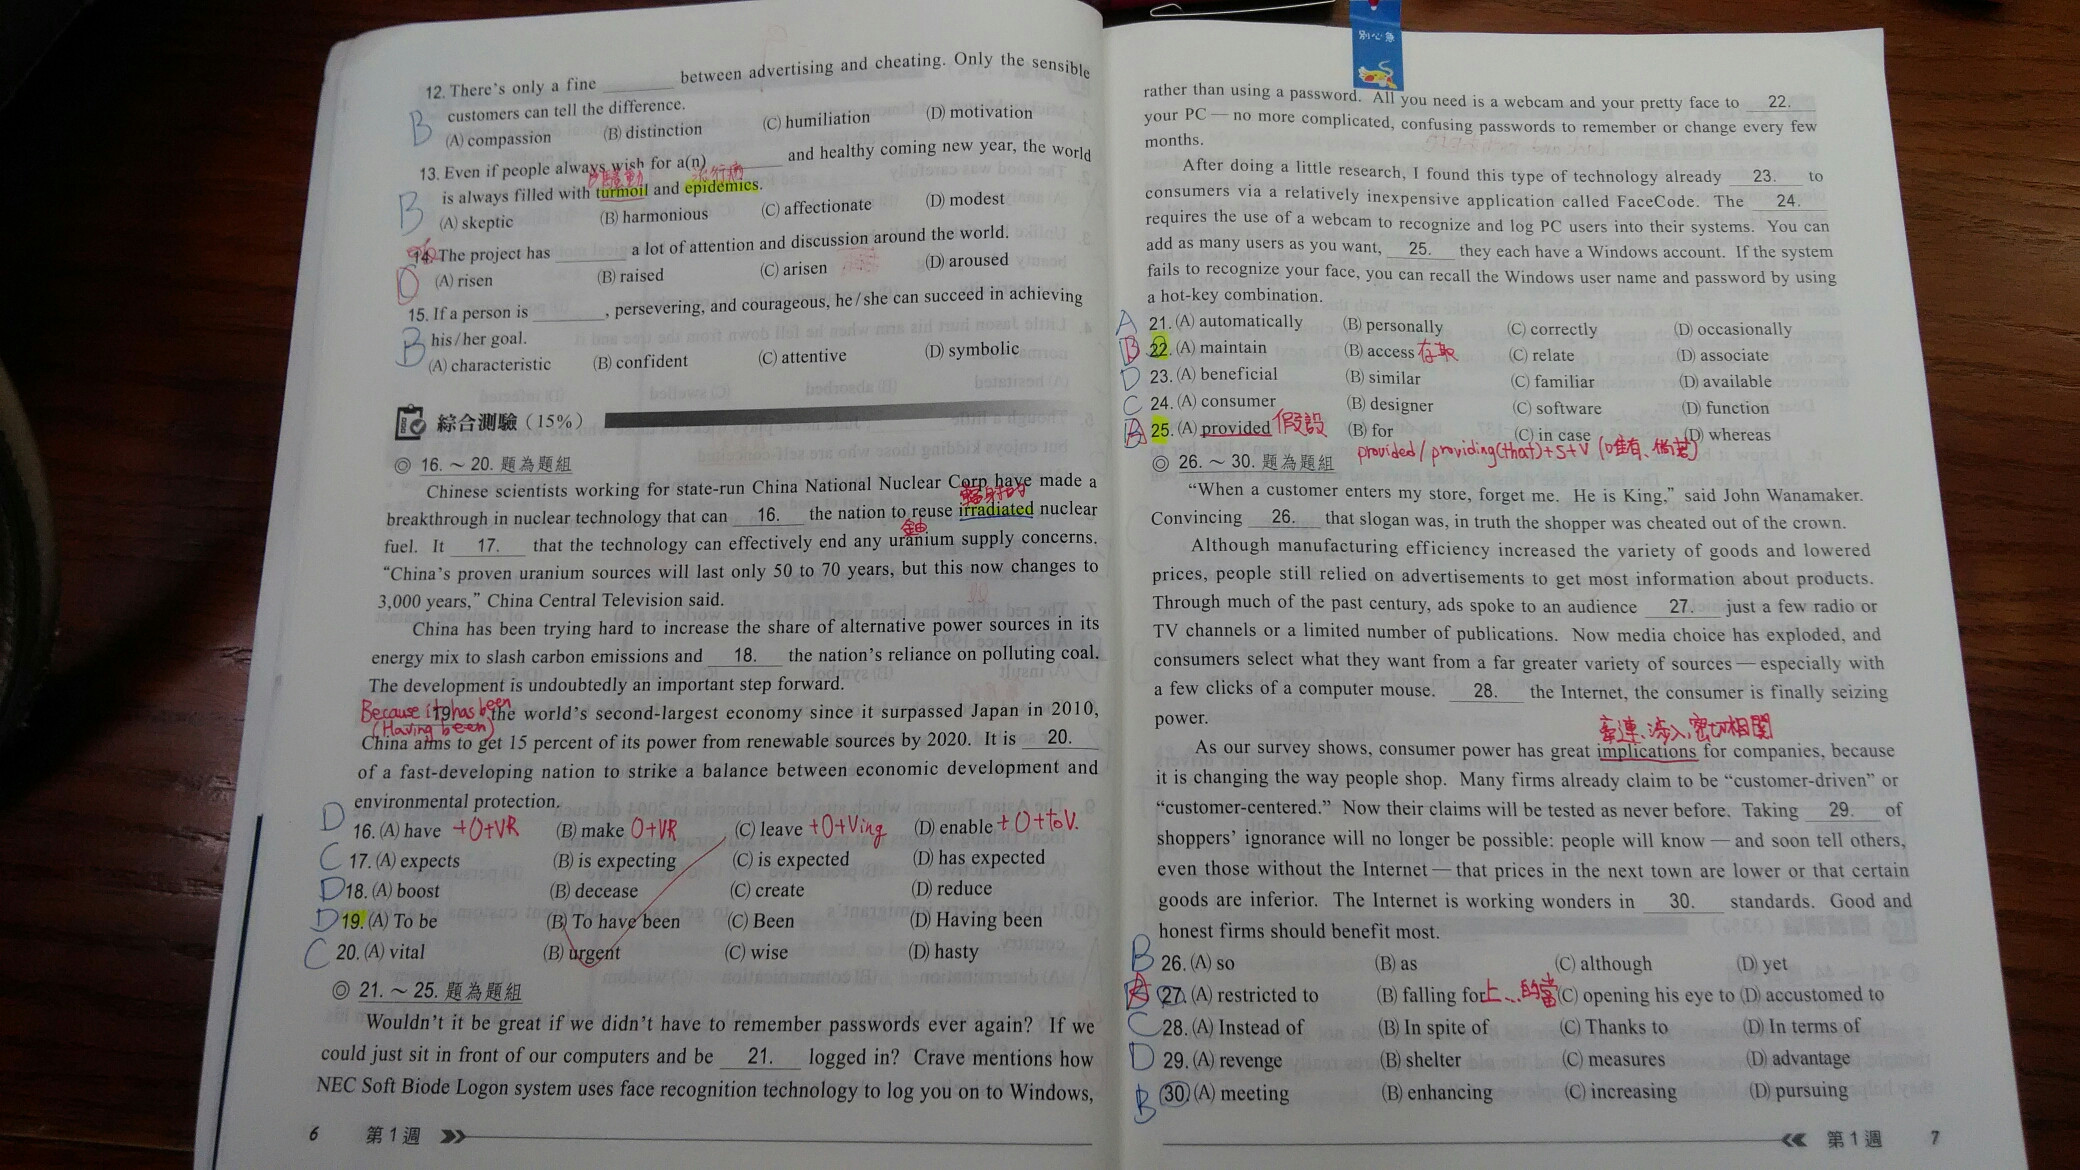 12. There's only a fine ________ between advertising and cheating. Only the sensible
customers can tell the difference.
B
(A) compassion (B) distinction (C) humiliation (D) motivation
13. Even if people always wish for a(n) ________ and healthy coming new year, the world
騷動 流行病
is always filled with turmoil and epidemics.
B
(A) skeptic (B) harmonious (C) affectionate (D) modest
14. The project has ________ a lot of attention and discussion around the world.
D
(A) risen (B) raised (C) arisen (D) aroused
15. If a person is ________, persevering, and courageous, he/she can succeed in achieving
his/her goal.
B
(A) characteristic (B) confident (C) attentive (D) symbolic
綜合測驗(15%)
◎ 16. ~ 20. 題為題組
Chinese scientists working for state-run China National Nuclear Corp have made a
輻射的
breakthrough in nuclear technology that can 16. the nation to reuse irradiated nuclear
鈾
fuel. It 17. that the technology can effectively end any uranium supply concerns.
"China's proven uranium sources will last only 50 to 70 years, but this now changes to
3,000 years," China Central Television said.
China has been trying hard to increase the share of alternative power sources in its
energy mix to slash carbon emissions and 18. the nation's reliance on polluting coal.
The development is undoubtedly an important step forward.
Because it has been
19. the world's second-largest economy since it surpassed Japan in 2010,
(Having been)
China aims to get 15 percent of its power from renewable sources by 2020. It is 20.
of a fast-developing nation to strike a balance between economic development and
environmental protection.
D 16. (A) have +O+VR (B) make O+VR (C) leave +O+Ving (D) enable +O+to V.
C 17. (A) expects (B) is expecting (C) is expected (D) has expected
D 18. (A) boost (B) decease (C) create (D) reduce
D 19. (A) To be (B) To have been (C) Been (D) Having been
C 20. (A) vital (B) urgent (C) wise (D) hasty
◎ 21. ~ 25. 題為題組
Wouldn't it be great if we didn't have to remember passwords ever again? If we
could just sit in front of our computers and be 21. logged in? Crave mentions how
NEC Soft Biode Logon system uses face recognition technology to log you on to Windows,
6 第1週
別心急
rather than using a password. All you need is a webcam and your pretty face to 22.
your PC — no more complicated, confusing passwords to remember or change every few
months.
After doing a little research, I found this type of technology already 23. to
consumers via a relatively inexpensive application called FaceCode. The 24.
requires the use of a webcam to recognize and log PC users into their systems. You can
add as many users as you want, 25. they each have a Windows account. If the system
fails to recognize your face, you can recall the Windows user name and password by using
a hot-key combination.
A 21. (A) automatically (B) personally (C) correctly (D) occasionally
B 22. (A) maintain (B) access 存取 (C) relate (D) associate
D 23. (A) beneficial (B) similar (C) familiar (D) available
C 24. (A) consumer (B) designer (C) software (D) function
A 25. (A) provided 假設 (B) for (C) in case (D) whereas
provided/providing(that)+S+V (唯有、倘若)
◎ 26. ~ 30. 題為題組
"When a customer enters my store, forget me. He is King," said John Wanamaker.
Convincing 26. that slogan was, in truth the shopper was cheated out of the crown.
Although manufacturing efficiency increased the variety of goods and lowered
prices, people still relied on advertisements to get most information about products.
Through much of the past century, ads spoke to an audience 27. just a few radio or
TV channels or a limited number of publications. Now media choice has exploded, and
consumers select what they want from a far greater variety of sources — especially with
a few clicks of a computer mouse. 28. the Internet, the consumer is finally seizing
power.
牽連、涉入、密切相關
As our survey shows, consumer power has great implications for companies, because
it is changing the way people shop. Many firms already claim to be "customer-driven" or
"customer-centered." Now their claims will be tested as never before. Taking 29. of
shoppers' ignorance will no longer be possible: people will know — and soon tell others,
even those without the Internet — that prices in the next town are lower or that certain
goods are inferior. The Internet is working wonders in 30. standards. Good and
honest firms should benefit most.
B 26. (A) so (B) as (C) although (D) yet
A 27. (A) restricted to (B) falling for 上...的當 (C) opening his eye to (D) accustomed to
C 28. (A) Instead of (B) In spite of (C) Thanks to (D) In terms of
D 29. (A) revenge (B) shelter (C) measures (D) advantage
B 30. (A) meeting (B) enhancing (C) increasing (D) pursuing
第1週 7